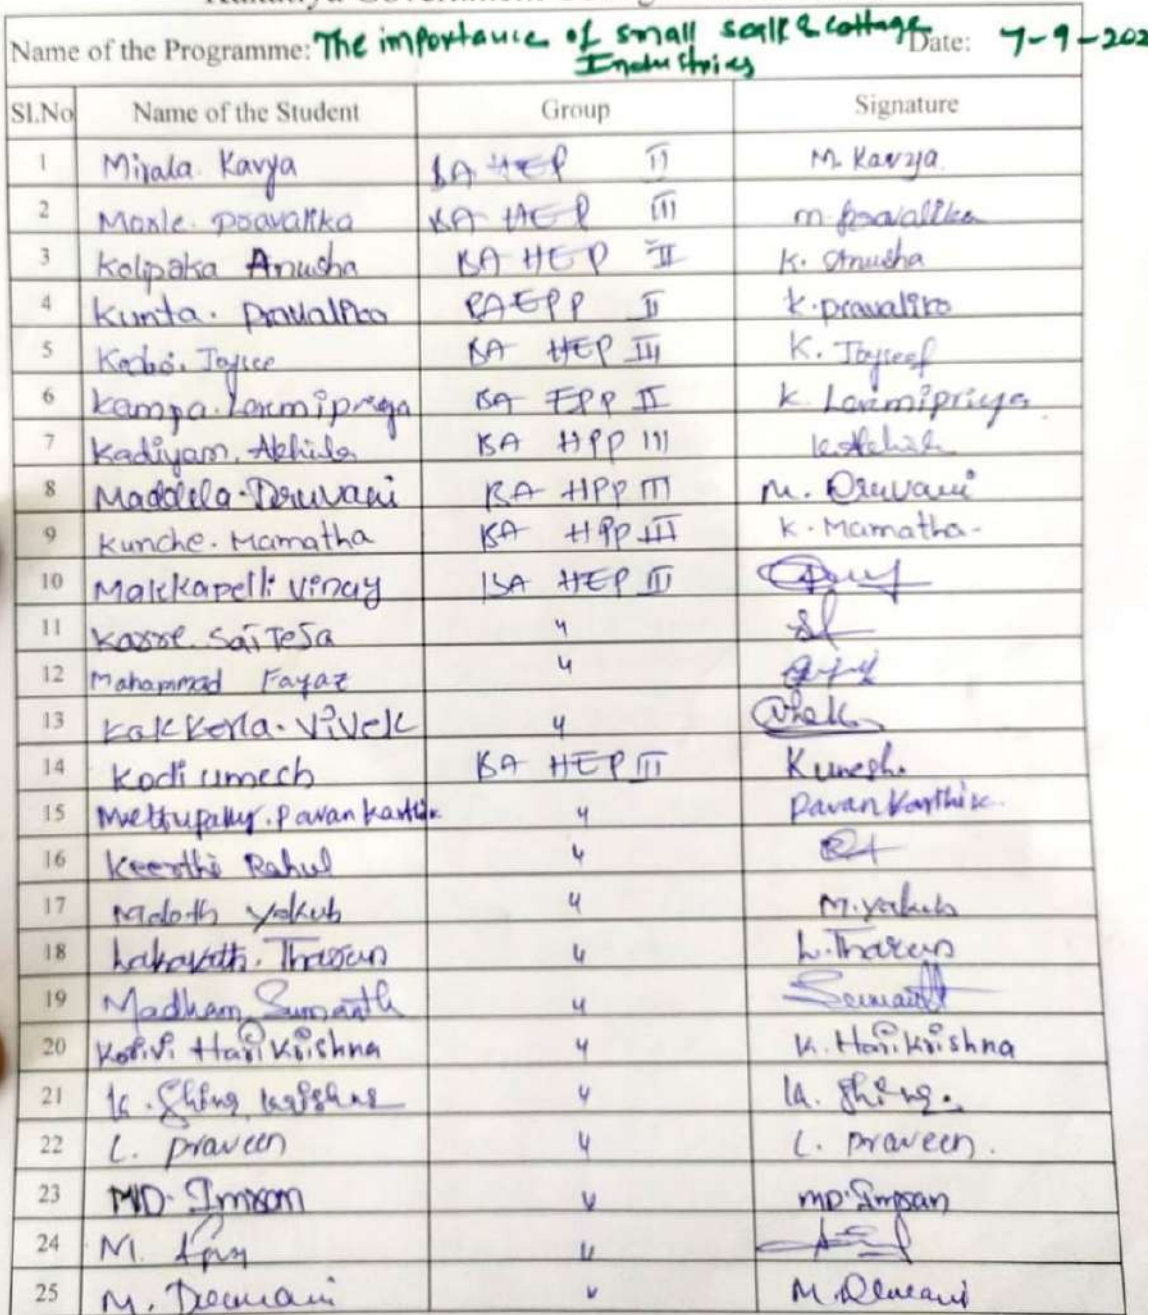 Name of the Programme: The importance of small scale & cottage Date: 7-9-202
Industries
Sl.No Name of the Student Group Signature
1 Mirala Kavya BA HEP II M. Kavya
2 Pravalika BA HEP III m. pravalika
3 Kolipaka Anusha BA HEP II K. Anusha
4 Kunta. Pravalika BA EPP II K. pravalika
5 BA HEP III K.
6 Kampa. Laxmipriya BA EPP II K. Laxmipriya
7 Kadiyam. Akhila BA HPP III K. Akhila
8 Maddela. Druvani BA HPP III M. Druvani
9 Kunche. Mamatha BA HPP III K. Mamatha
10 Makkapelli Vinay BA HEP III
11 Sai Teja "
12 Mahammad Fayaz "
13 Kakkerla. Vivek " Vivek
14 Kodi umesh BA HEP III K umesh.
15 Mettupally. Pavan Karthik " Pavan Karthik.
16 Keerthi Rahul "
17 Maloth Yakub " M. yakub
18 Lakavath. Tharun " L. Tharun
19 Madham Sumanth " Sumanth
20 Hari Krishna " K. Hari Krishna
21 K. Shiva Krishna " K. Shiva.
22 L. Praveen " L. Praveen.
23 MD. Imran " MD. Imran
24 M. "
25 M. Druvani " M. Druvani